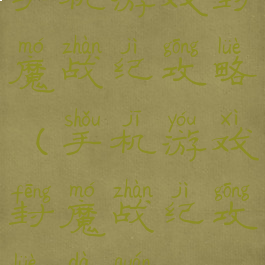 手机游戏封
mó zhàn jì gōng lüè
魔战纪攻略
shǒu jī yóu xì
（手机游戏
fēng mó zhàn jì gōng
封魔战纪攻